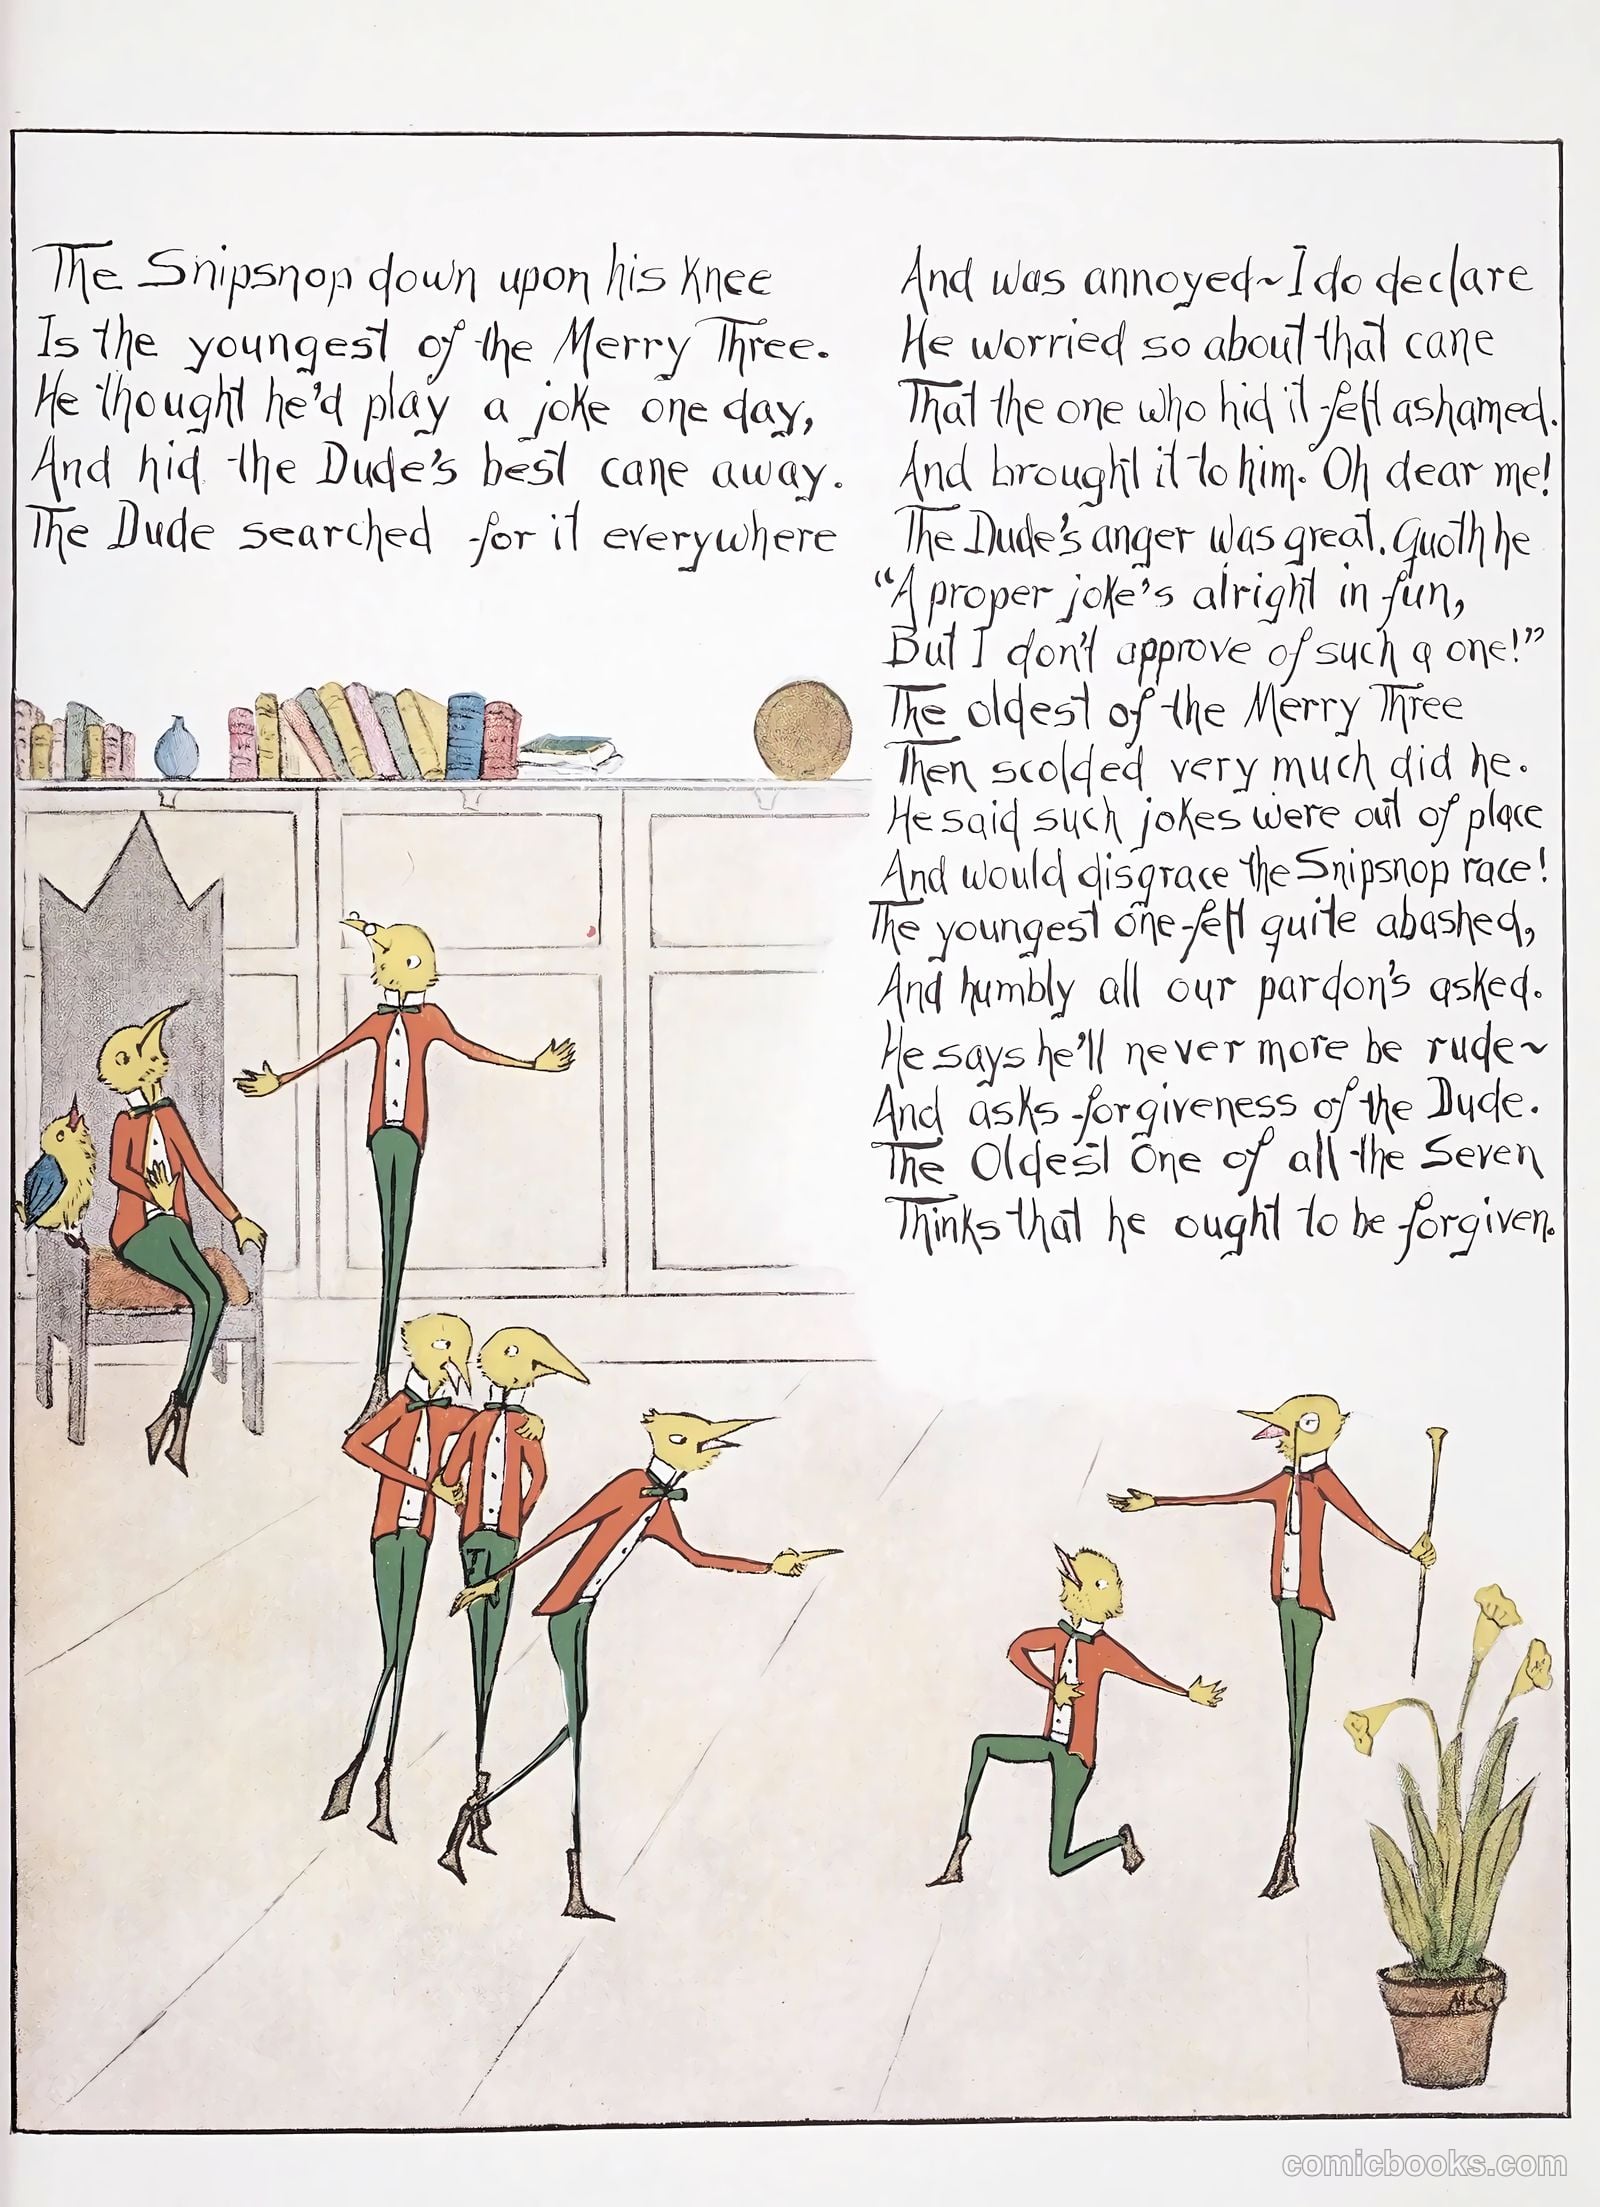 The Snipsnop down upon his Knee
Is the youngest of the Merry Three.
He thought he'd play a joke one day,
And hid the Dude's best cane away.
The Dude searched for it everywhere
And was annoyed~I do declare
He worried so about that cane
That the one who hid it felt ashamed.
And brought it to him. Oh dear me!
The Dude's anger was great. Quoth he
"A proper joke's alright in fun,
But I don't approve of such a one!"
The oldest of the Merry Three
Then scolded very much did he.
He said such jokes were out of place
And would disgrace the Snipsnop race!
The youngest one felt quite abashed,
And humbly all our pardon's asked.
He says he'll never more be rude~
And asks forgiveness of the Dude.
The Oldest One of all the Seven
Thinks that he ought to be forgiven.
M.S.
comicbooks.com